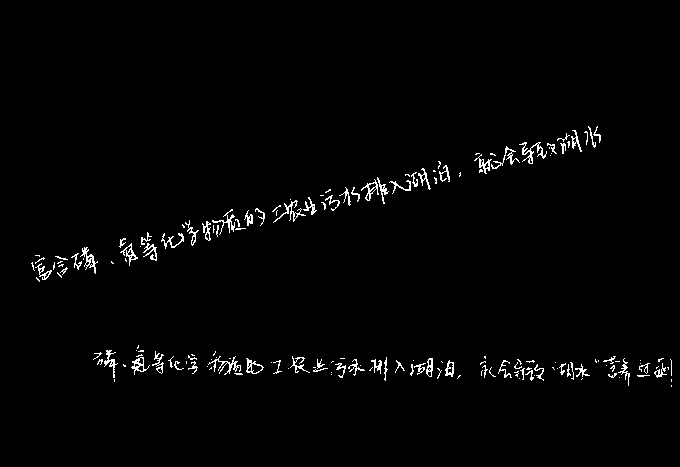 富含磷、氮等化学物质的工农业污水排入湖泊，就会导致湖水
磷、氮等化学物质的工农业污水排入湖泊，就会导致湖水“营养过剩